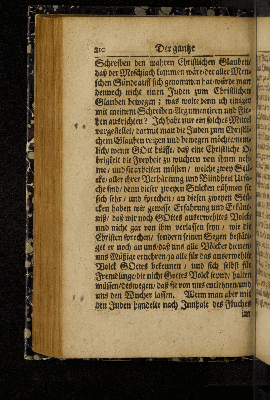 210 Der gantze
Schreiben den wahren Christlichen Glauben/
daß der Moschiach kommen wäre/der aller Men-
schen Sünde auff sich genommen hat/würde man
dennoch nicht einen Juden zum Christlichen
Glauben bewegen; was wolte denn ich einiger
mit meinem Schreiben/Argumentiren und Zie-
hen ausrichten? Ich habe nur ein solches Mittel
vorgestellet/darmit man die Juden zum Christli-
chem Glauben reitzen und bewegen möchte/nem-
lich/wenn GOtt hülffe, daß eine Christliche O-
brigkeit die Freyheit zu wuchern von ihnen neh-
me/ und sie arbeiten müsten/ welche zwey Stü-
cke aller ihrer Verführung und Blindheit Ursa-
che sind/denn dieser zweyen Stücken rühmen sie
sich sehr/ und sprechen/ an diesen zweyen Stü-
cken haben wir gewisse Erfahrung und Erkänt-
niß/ daß wir noch GOttes auserwehltes Volck
und nicht gar von ihm verlassen seyn/ wie die
Christen sprechen/ sondern seinen Segen bestäti-
get er noch an uns/daß uns alle Völcker dienen/
uns Müßige ernehren/ja alle für das auserwehlte
Volck GOttes bekennen/ und sich selbst für
Frembdlinge/die nicht Gottes Volck seynd/ halten
müssen/deswegen/ daß sie von uns entlehnen/und
uns den Wucher lassen. Wenn man aber mit
den Juden handelte nach Innhalt des Fluches